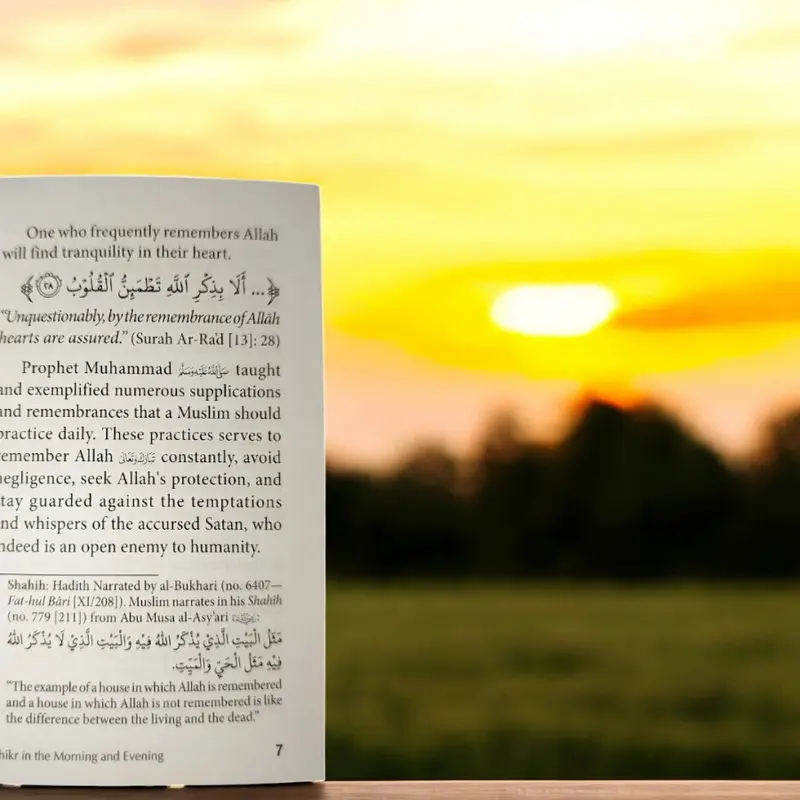 One who frequently remembers Allah
will find tranquility in their heart.
﴿... أَلَا بِذِكْرِ ٱللَّهِ تَطْمَئِنُّ ٱلْقُلُوْبُ ٢٨﴾
"Unquestionably, by the remembrance of Allāh
hearts are assured." (Surah Ar-Ra'd [13]: 28)
Prophet Muhammad ﷺ taught
and exemplified numerous supplications
and remembrances that a Muslim should
practice daily. These practices serves to
remember Allah تَبَارَكَ وَتَعَالَى constantly, avoid
negligence, seek Allah's protection, and
stay guarded against the temptations
and whispers of the accursed Satan, who
indeed is an open enemy to humanity.
Shahih: Hadith Narrated by al-Bukhari (no. 6407—
Fat-hul Bâri [XI/208]). Muslim narrates in his Shahih
(no. 779 [211]) from Abu Musa al-Asy'ari
مَثَلُ الْبَيْتِ الَّذِيْ يُذْكَرُ اللهُ فِيْهِ وَالْبَيْتِ الَّذِيْ لَا يُذْكَرُ اللهُ
فِيْهِ مَثَلُ الْحَيِّ وَالْمَيِّتِ.
"The example of a house in which Allah is remembered
and a house in which Allah is not remembered is like
the difference between the living and the dead."
hikr in the Morning and Evening
7